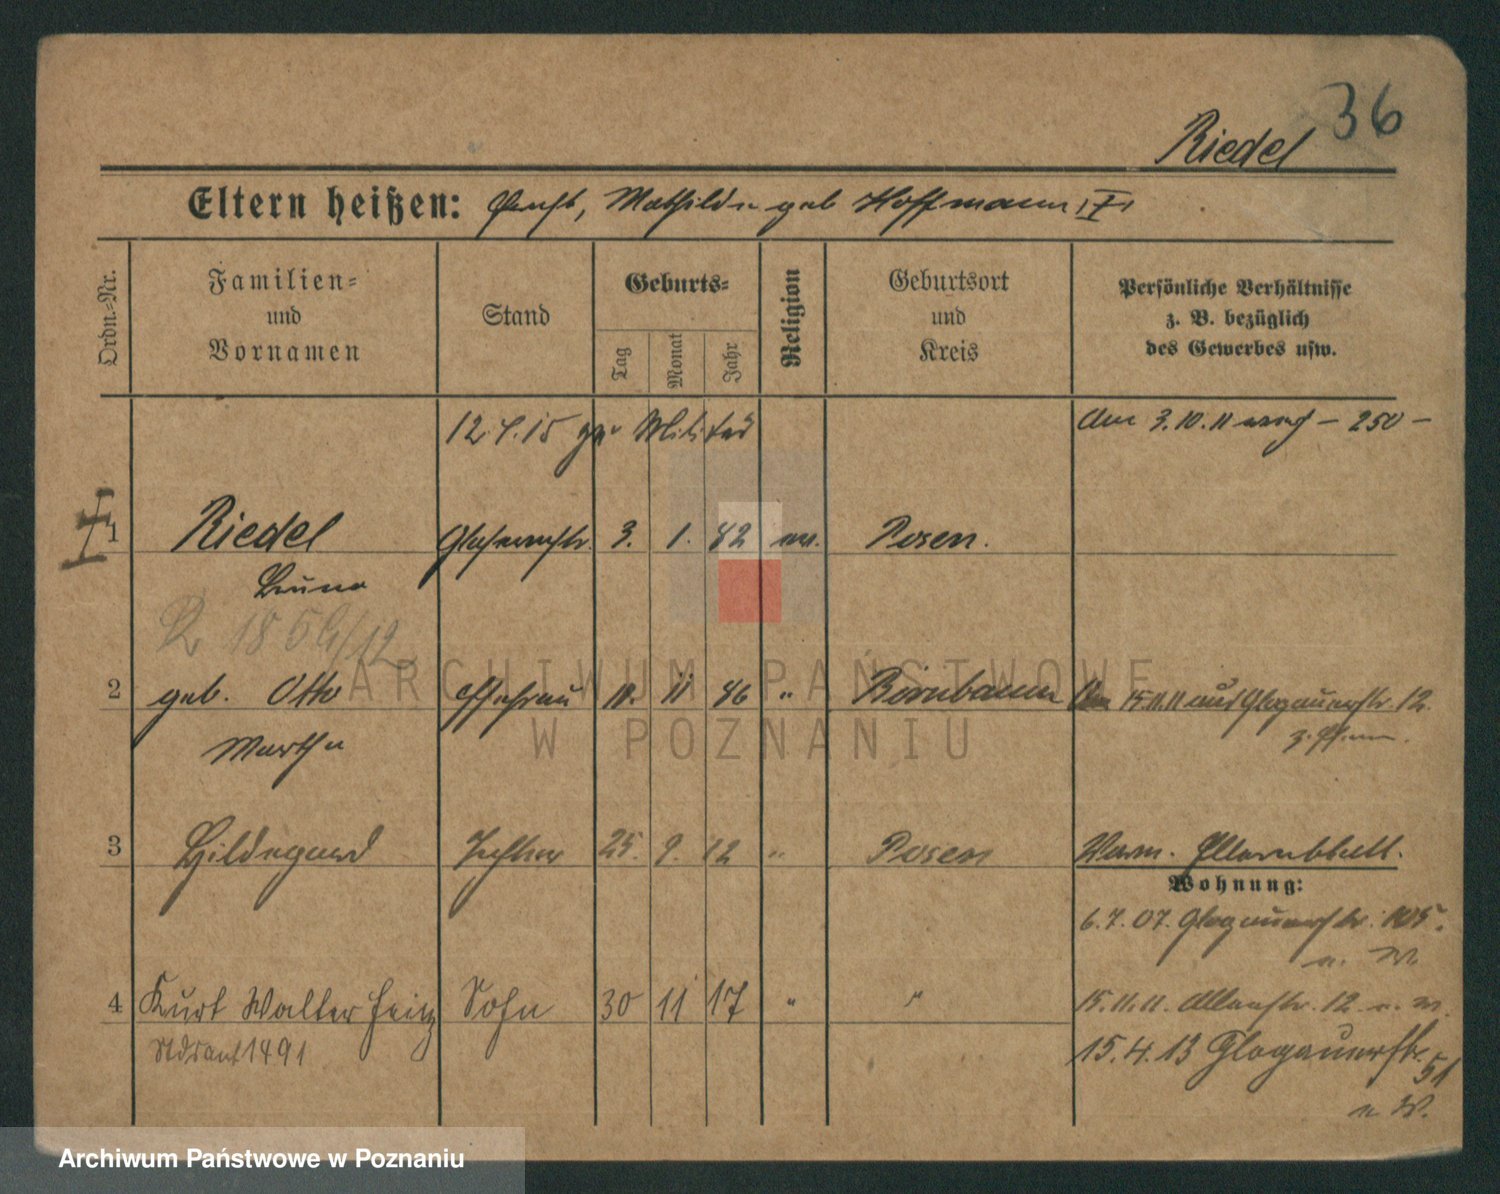 36
Riedel
Eltern heißen: Mathilde geb Hoffmann
Ordn.-Nr.
Familien-
und
Vornamen
Stand
Geburts-
Tag
Monat
Jahr
Religion
Geburtsort
und
Kreis
Persönliche Verhältnisse
z. B. bezüglich
des Gewerbes usw.
12.4.15 zur Militär
Am 3.10.11 – 250 –
1 Riedel 3. 1. 82 ev. Posen.
Bruno
2 geb. Otto Ehefrau 11 86 " Birnbaum 15.11.11 aus Glogauerstr. 12.
Martha
3 Hildegard Tochter 25. 9. 12 " Posen
Wohnung:
6.7.07. Glogauerstr. 105.
u. W.
4 Kurt Walter Heinz Sohn 30 11 17 " "
15.11.11. 12 u. W.
1491
15.4.13 Glogauerstr. 51
u. W.
ARCHIWUM PAŃSTWOWE
W POZNANIU
Archiwum Państwowe w Poznaniu